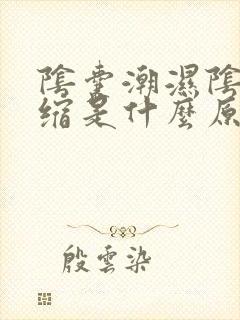 陰囊潮濕陰
缩是什麼原
殷雲染